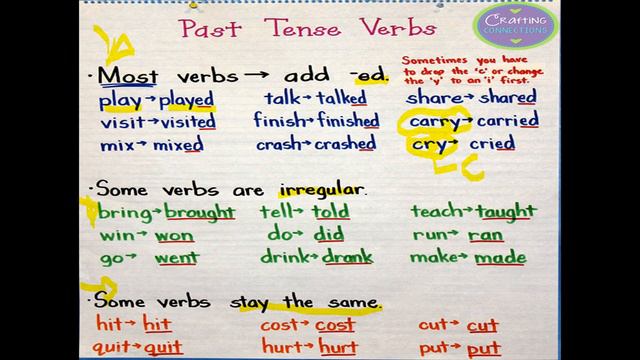 Past Tense Verbs
Crafting
CONNECTIONS
· Most verbs → add -ed.
Sometimes you have
to drop the 'e' or change
the 'y' to an 'i' first.
play → played talk → talked share → shared
visit → visited finish → finished carry → carried
mix → mixed crash → crashed cry → cried
· Some verbs are irregular.
bring → brought tell → told teach → taught
win → won do → did run → ran
go → went drink → drank make → made
· Some verbs stay the same.
hit → hit cost → cost cut → cut
quit → quit hurt → hurt put → put